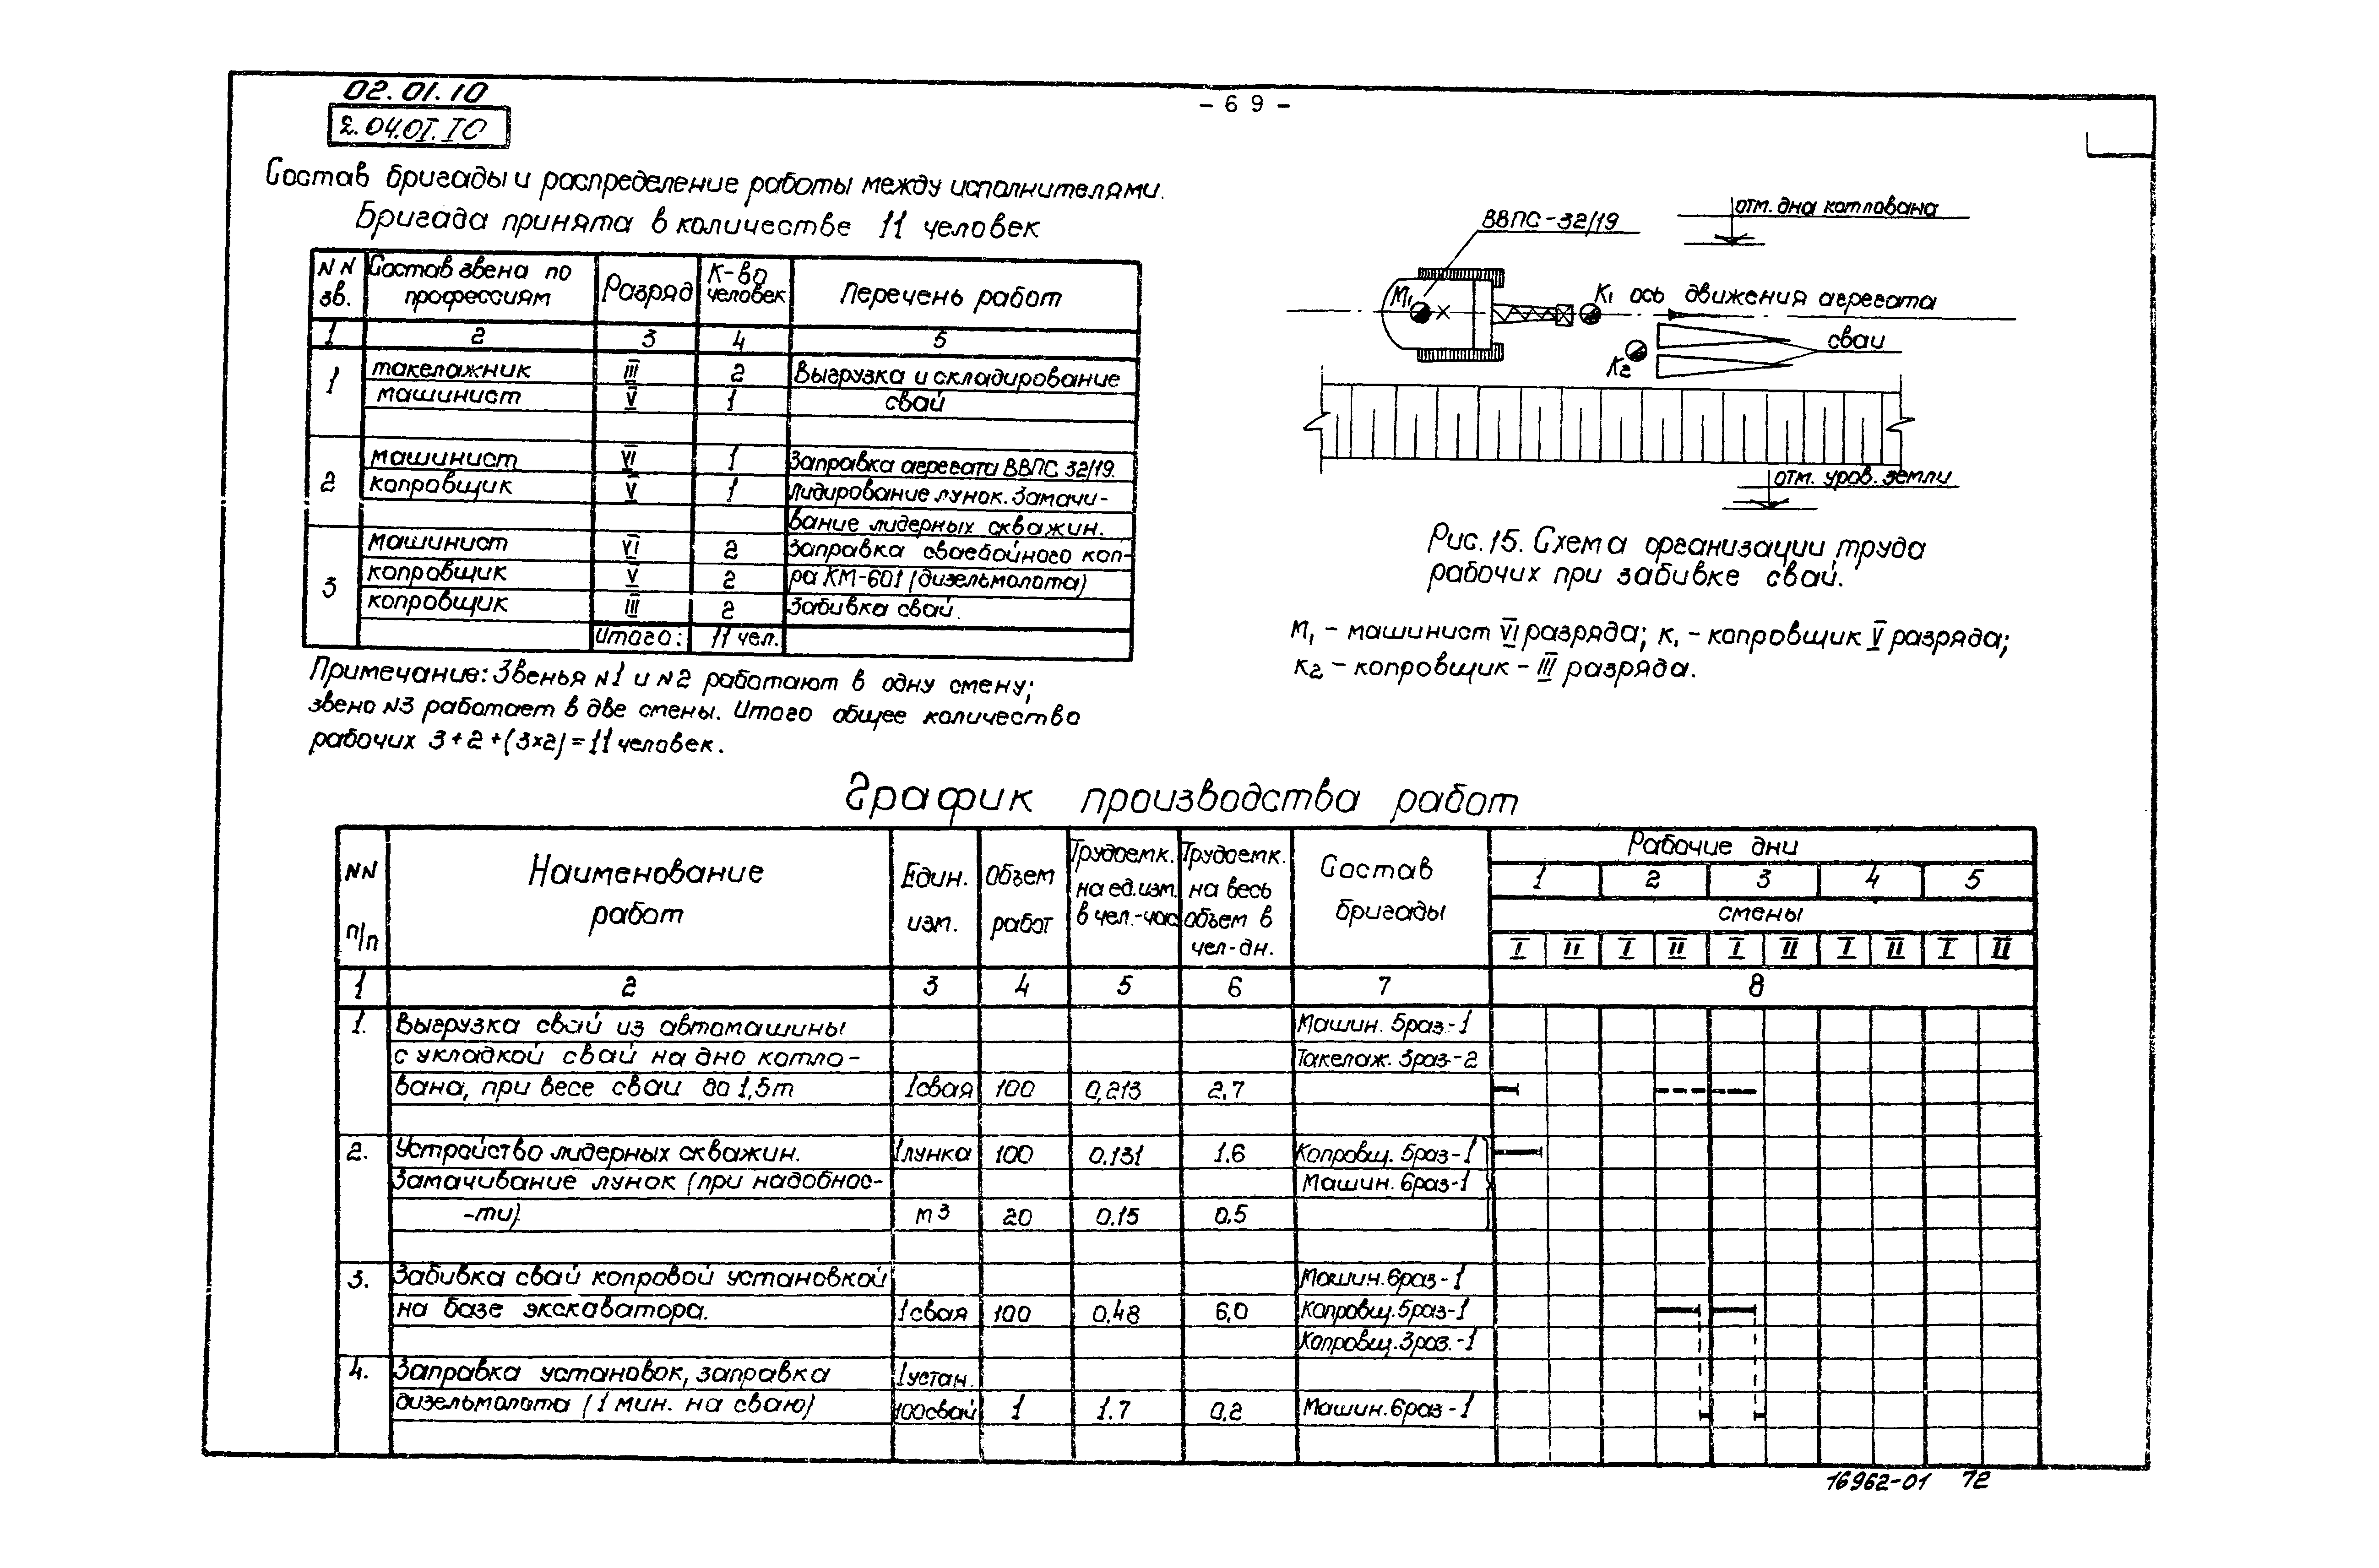 02.01.10
2.04.01.10
- 69 -
Состав бригады и распределение работы между исполнителями.
Бригада принята в количестве 11 человек
NN зв. Состав звена по профессиям Разряд К-во человек Перечень работ
1 2 3 4 5
1 такелажник III 2 Выгрузка и складирование
машинист V 1 свай
2 машинист VI 1 Заправка агрегата ВВПС 32/19.
копровщик V 1 Лидирование лунок. Замачи-
вание лидерных скважин.
3 машинист VI 2 Заправка сваебойного коп-
копровщик V 2 ра КМ-601 (дизельмолота)
копровщик III 2 Забивка свай.
Итого: 11 чел.
Примечание: Звенья N1 и N2 работают в одну смену;
звено N3 работает в две смены. Итого общее количество
рабочих 3+2+(3х2)=11 человек.
отм. дна котлована
ВВПС-32/19
М1
К1 ось движения агрегата
сваи
К2
отм. уров. земли
Рис. 15. Схема организации труда
рабочих при забивке свай.
М1 - машинист VI разряда; К1 - копровщик V разряда;
К2 - копровщик - III разряда.
График производства работ
NN п/п Наименование работ Един. изм. Объем работ Трудоемк. на ед.изм. в чел.-час Трудоемк. на весь объем в чел-дн. Состав бригады Рабочие дни
1 2 3 4 5
смены
I II I II I II I II I II
1 2 3 4 5 6 7 8
1. Выгрузка свай из автомашины Машин. 5раз-1
с укладкой свай на дно котло- Такелаж. 3раз-2
вана, при весе сваи до 1,5т 1свая 100 0,213 2,7
2. Устройство лидерных скважин. 1лунка 100 0.131 1.6 Копровщ. 5раз-1
Замачивание лунок (при надобнос- Машин. 6раз-1
-ти) м3 20 0,15 0,5
3. Забивка свай копровой установкой Машин.6раз-1
на базе экскаватора. 1свая 100 0,48 6,0 Копровщ.5раз-1
Копровщ.3раз.-1
4. Заправка установок, заправка 1устан.
дизельмолота (1 мин. на сваю) 100свай 1 1.7 0,2 Машин.6раз-1
16962-01 72